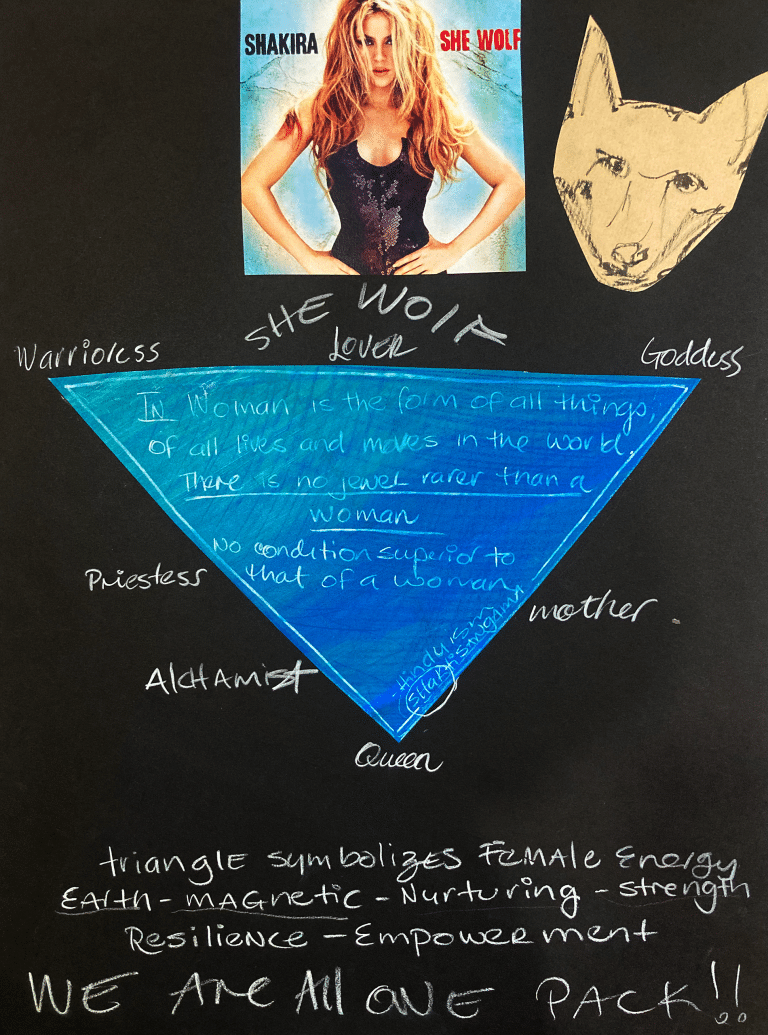 SHAKIRA SHE WOLF
SHE WOLF
Warrioress LOVER Goddess
IN Woman is the form of all things,
of all lives and moves in the world.
There is no jewel rarer than a
woman
No condition superior to
that of a woman
Priestess
mother.
Hinduism
AlcHAmist
Queen
triangle symbolizes FEMAle Energy
EArth - mAGnetic - Nurturing - strength
Resilience - Empowerment
WE Are All oNE PACK!!